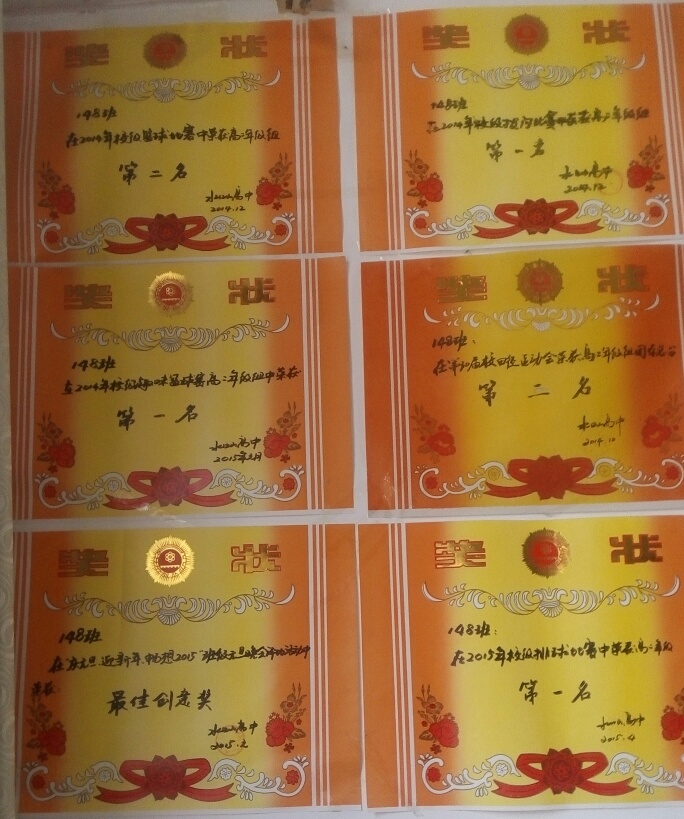 奖状
148班
在2014年校级篮球比赛中荣获高二年级组
第二名
高中
2014.12
奖状
148班
在2014年校级拔河比赛中荣获高二年级组
第一名
高中
2014.12
奖状
148班
在2014年校级趣味篮球赛高二年级组中荣获
第一名
高中
2015年2月
奖状
148班:
在第30届校田径运动会荣获高二年级组团体总分
第二名
高中
2014.10
奖状
148班
在"庆元旦、迎新年、畅想2015"班级元旦晚会评比活动中
荣获:
最佳创意奖
高中
2015.2
奖状
148班:
在2015年校级排球比赛中荣获高二年级
第一名
高中
2015.4